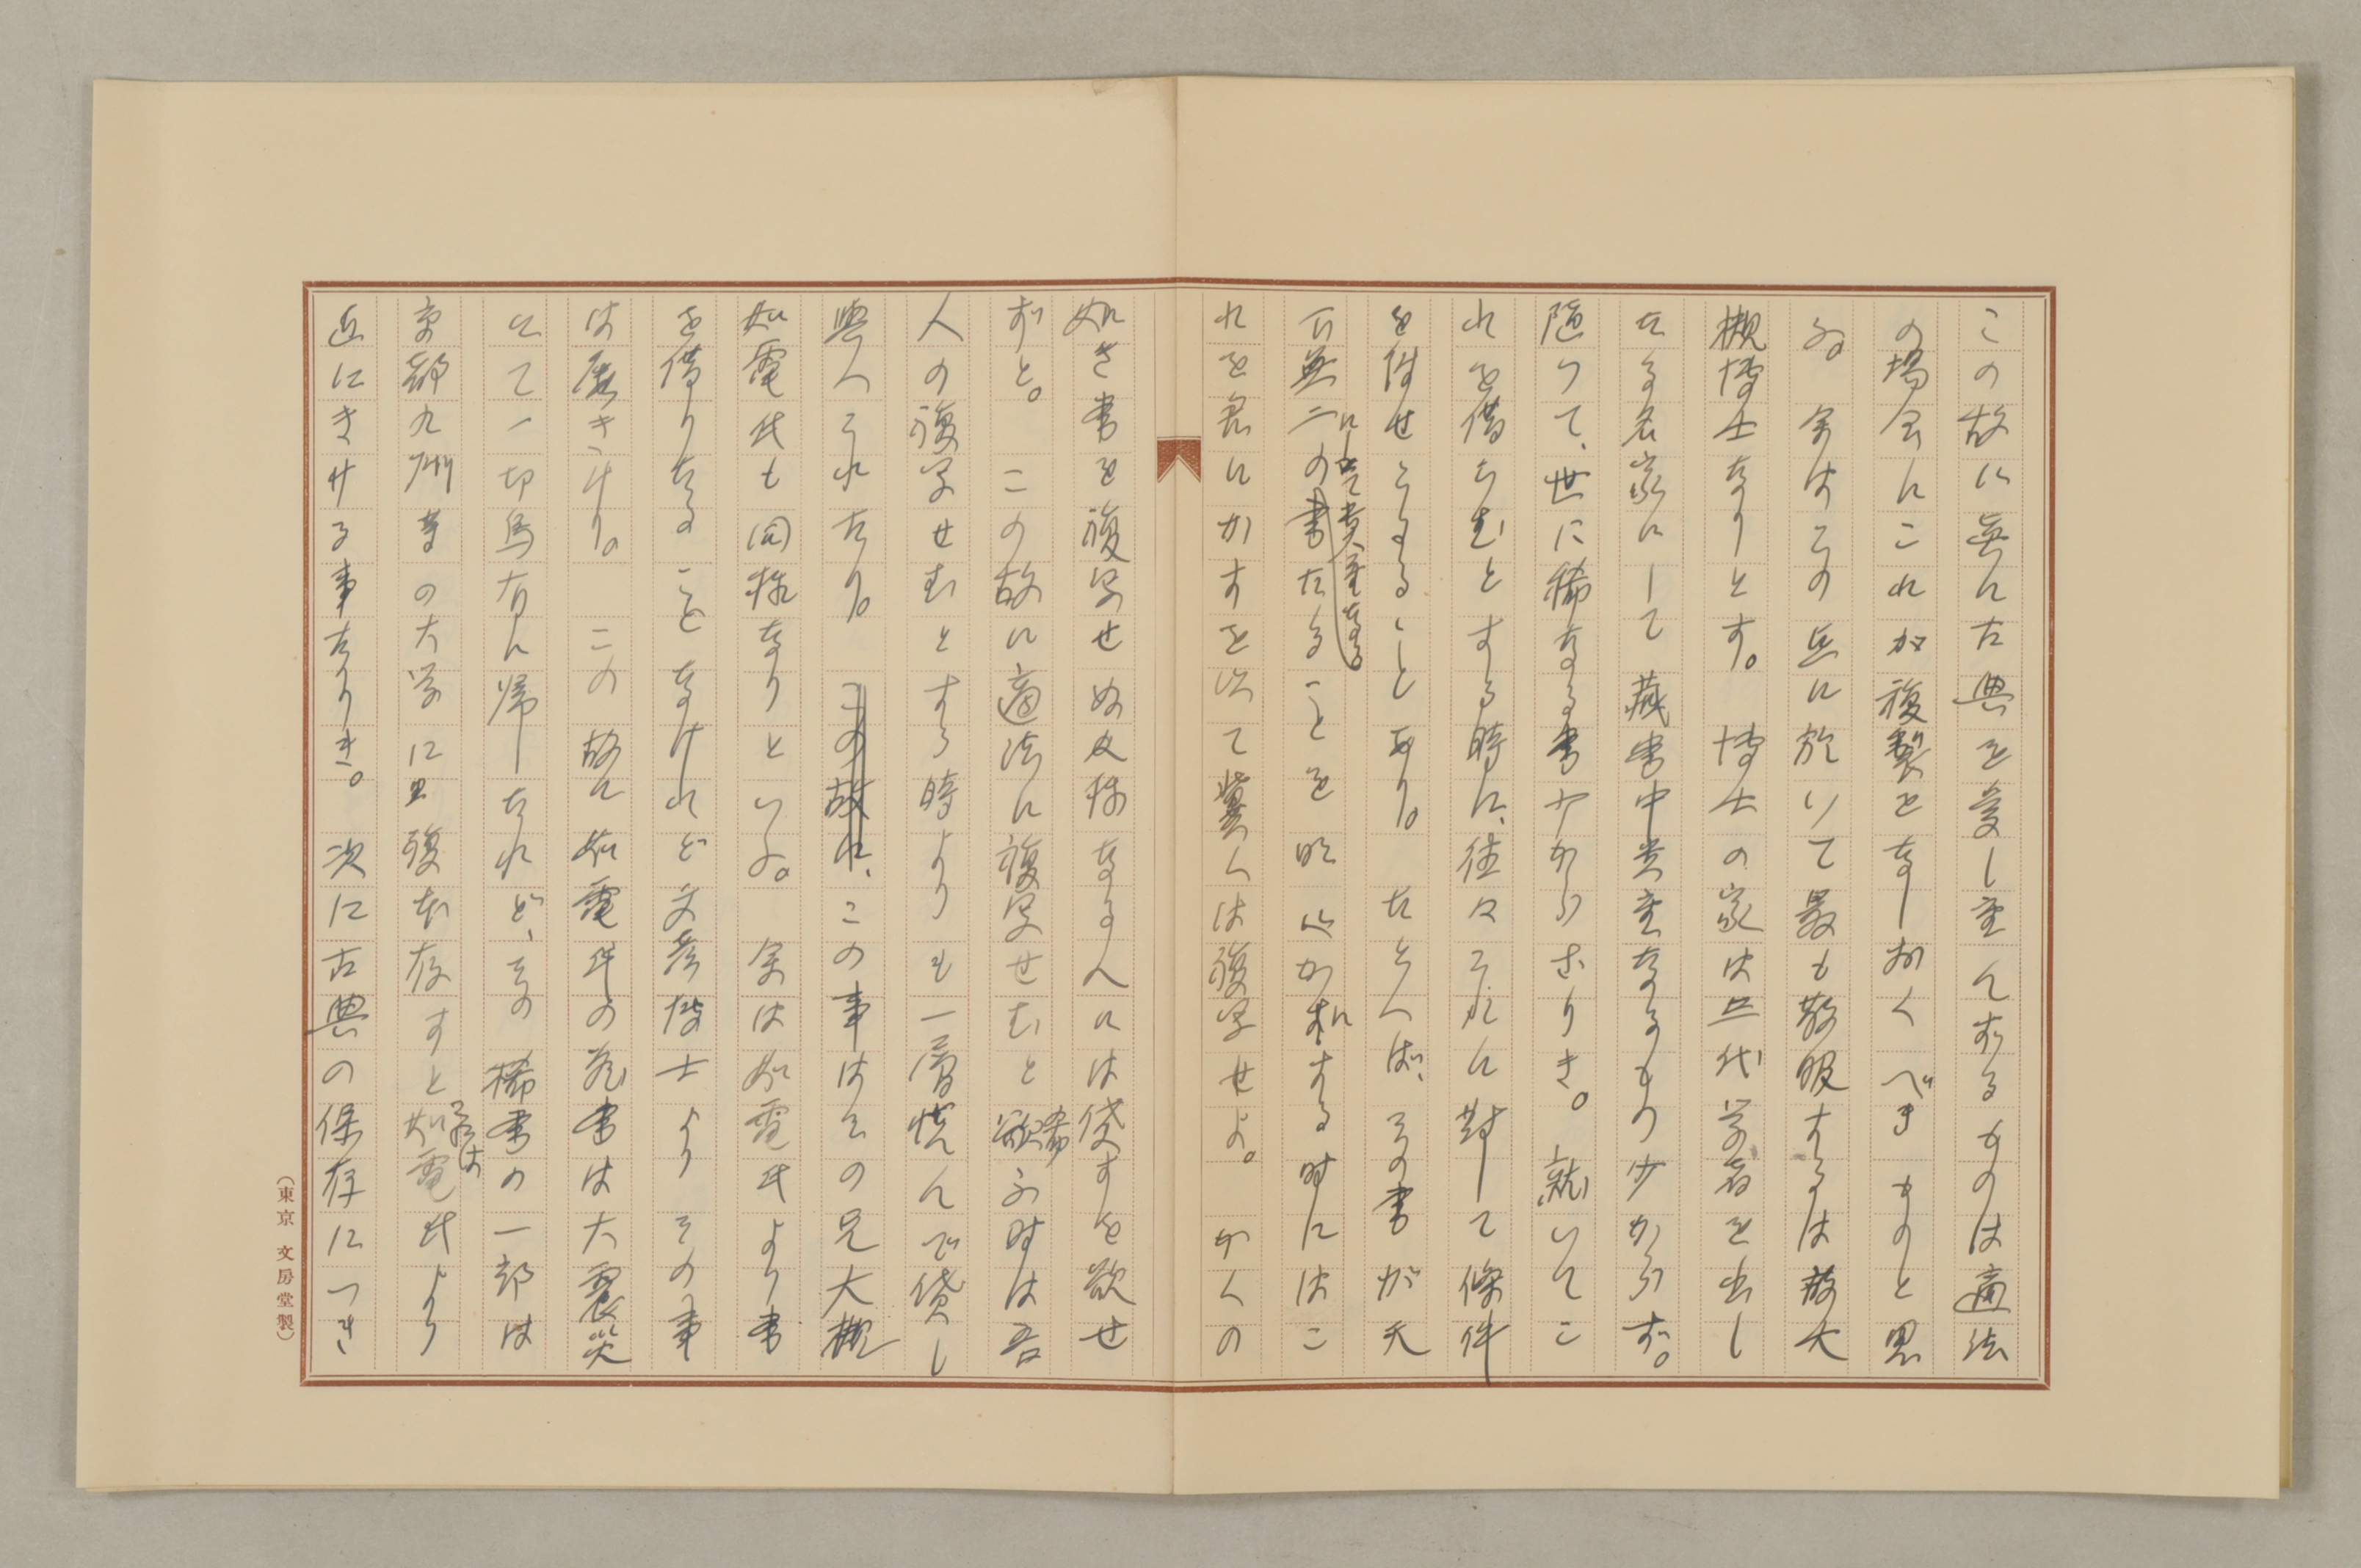 この故に真に古典を愛し重んずるものは適法
の場合にこれが複製をなしおくべきものと思
ふ。余はこの点に於いて最も敬服するは故大
槻博士なりとす。博士の家は三代学者を出し
たる名家にして藏書中貴重なるもの少からず。
随つて、世に稀なる書少からざりき。就いてこ
れを借らむとする時に、往々これに対して條件
を付せらるゝことあり。たとへば、その書が天
下無二の書にして貴重なることを明にする時にはこ
れを君にかすを以て冀くは複写せよ。かくの
如き書を複写せぬ文板なる人には貸すを欲せ
ずと。この故に適法に複写せむと欲ふ時は吾
人の複写せむとする時よりも一層悦んで貸し
與へられたり。この故に、この事はその兄大槻
如電氏も同様なりといふ。余は如電氏より書
を借りたることなけれど文彦博士よりその事
は屡きけり。この故に如電氏の蔵書は大震災
にて一切烏有に帰したれど、その稀書の一部は
京都九州等の大学に複本存すと如電氏より
近にきける事ありき。次に古典の保存につき
（東京 文房堂製）